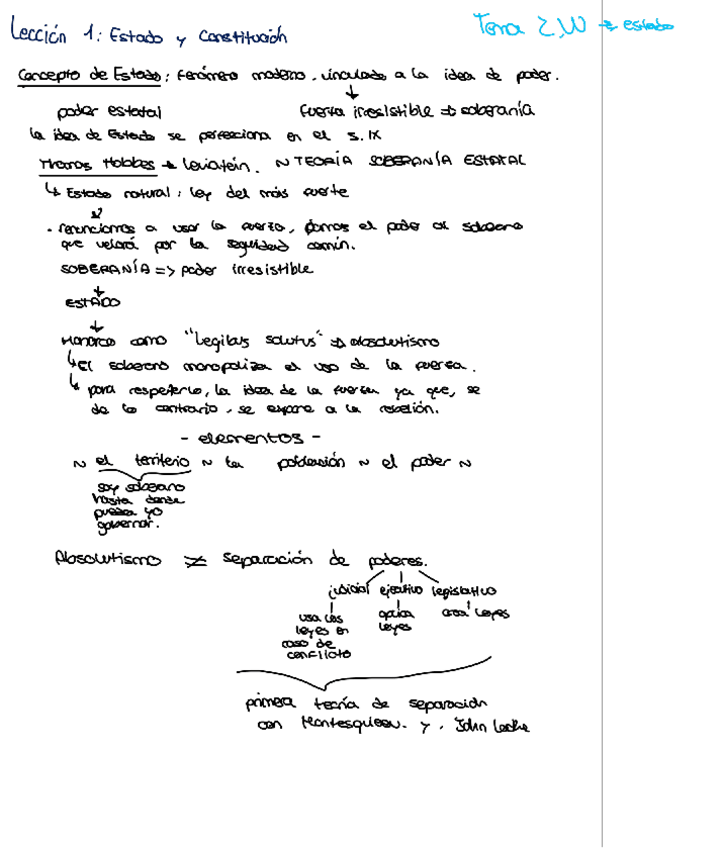 Lección 1: Estado y Constitución
Tema 2, → estado
Concepto de Estado: fenómeno moderno, vinculado a la idea de poder.
poder estatal
fuerza irresistible ⇒ soberanía
la idea de Estado se perfecciona en el s. IX
Thomas Hobbes → Leviatán. ~ TEORÍA SOBERANÍA ESTATAL
↳ Estado natural: ley del más fuerte
· renunciamos a usar la fuerza, damos el poder al soberano
que velará por la seguridad común.
SOBERANÍA => poder irresistible
ESTADO
Monarca como "legibus solutus" ⇒ absolutismo
↳ El soberano monopoliza el uso de la fuerza.
↳ para respeterlo, la idea de la fuerza ya que, se
de lo contrario, se expone a la rebelión.
- elementos -
~ el territorio ~ la población ~ el poder ~
soy soberano
hasta donde
pueda yo
gobernar.
Absolutismo ≠ separación de poderes.
judicial ejecutivo legislativo
usa las
leyes en
caso de
conflicto
aplica
leyes
crea leyes
primera teoría de separación
con Montesquieu. y. John Locke